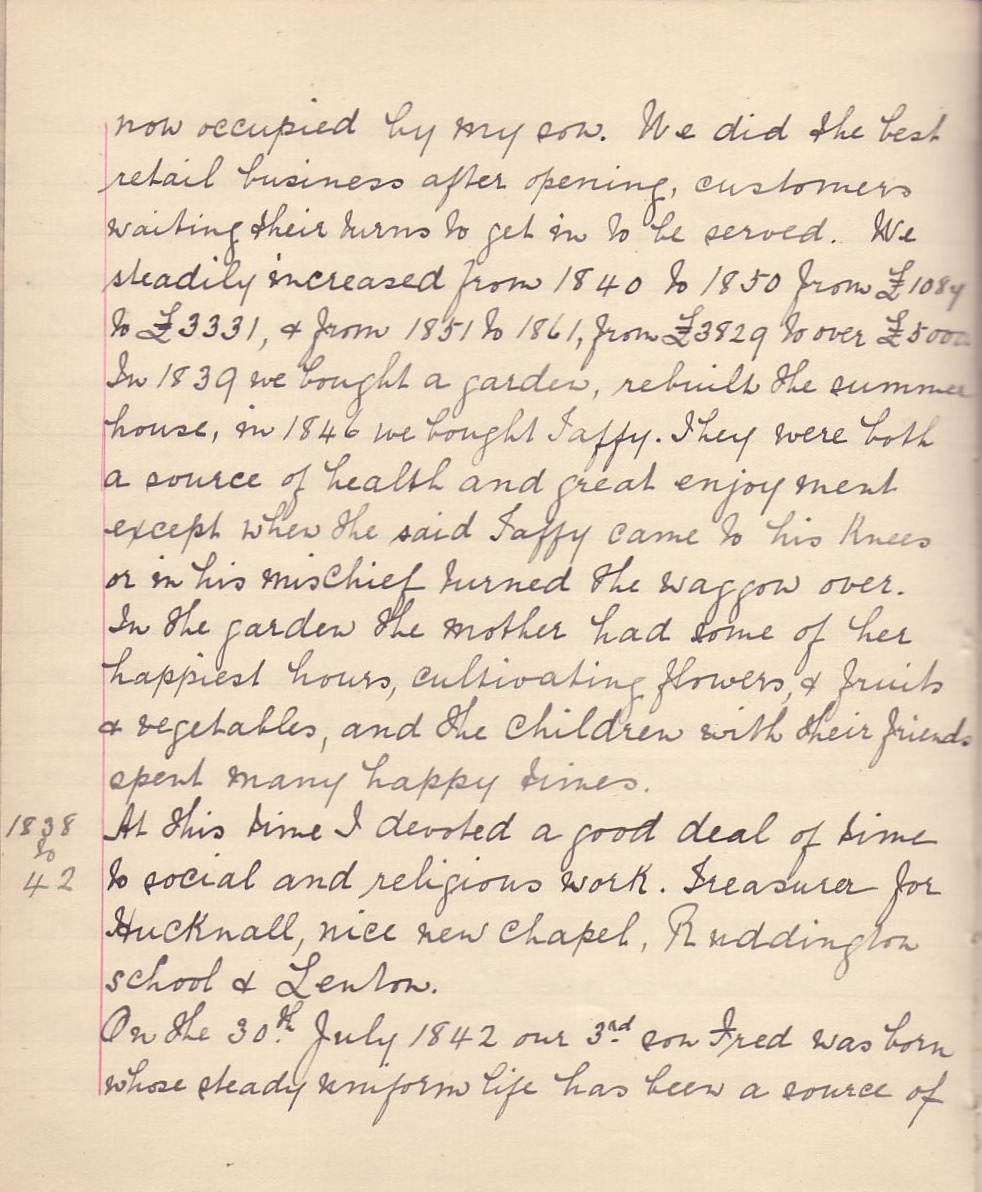 now occupied by my son. We did the best
retail business after opening, customers
waiting their turns to get in to be served. We
steadily increased from 1840 to 1850 from £1084
to £3331, & from 1851 to 1861, from £3829 to over £5000
In 1839 we bought a garden, rebuilt the summer
house, in 1846 we bought Taffy. They were both
a source of health and great enjoyment
except when the said Taffy came to his Knees
or in his mischief turned the waggon over.
In the garden the mother had some of her
happiest hours, cultivating flowers, & fruits
& vegetables, and the children with their friends
spent many happy times.
1838
to
42
At this time I devoted a good deal of time
to social and religious work. Treasurer for
Hucknall, nice new chapel, Ruddington
school & Lenton.
On the 30th July 1842 our 3rd son Fred was born
whose steady uniform life has been a source of